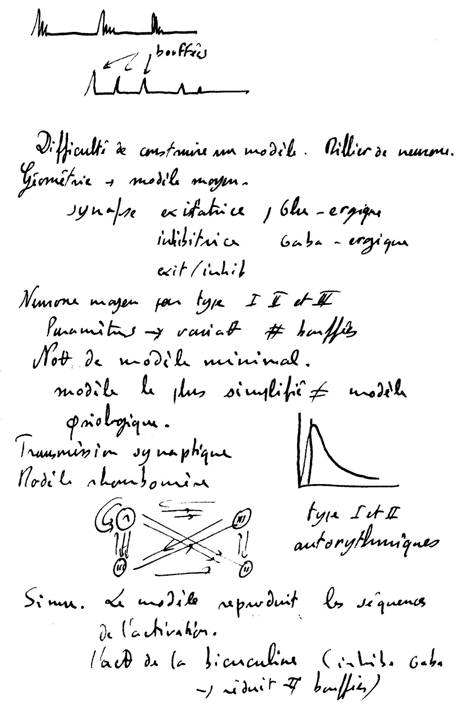 bouffées
Difficulté de construire un modèle. Millier de neurone.
Géométrie → modèle moyen.
synapse exitatrice, Glu-ergique
inhibitrice Gaba-ergique
exit/inhib
Neurone moyen par type I II et III
Paramètres → variat° # bouffées
Not° de modèle minimal.
modèle le plus simplifié ≠ modèle
φsiologique.
Transmission synaptique
Modèle rhombomère
type I et II
autorythmiques
I III
III II
Simu. Le modèle reproduit les séquences
de l'activation.
l'act° de la bicuculine (inhibe Gaba
→ réduit # bouffées)